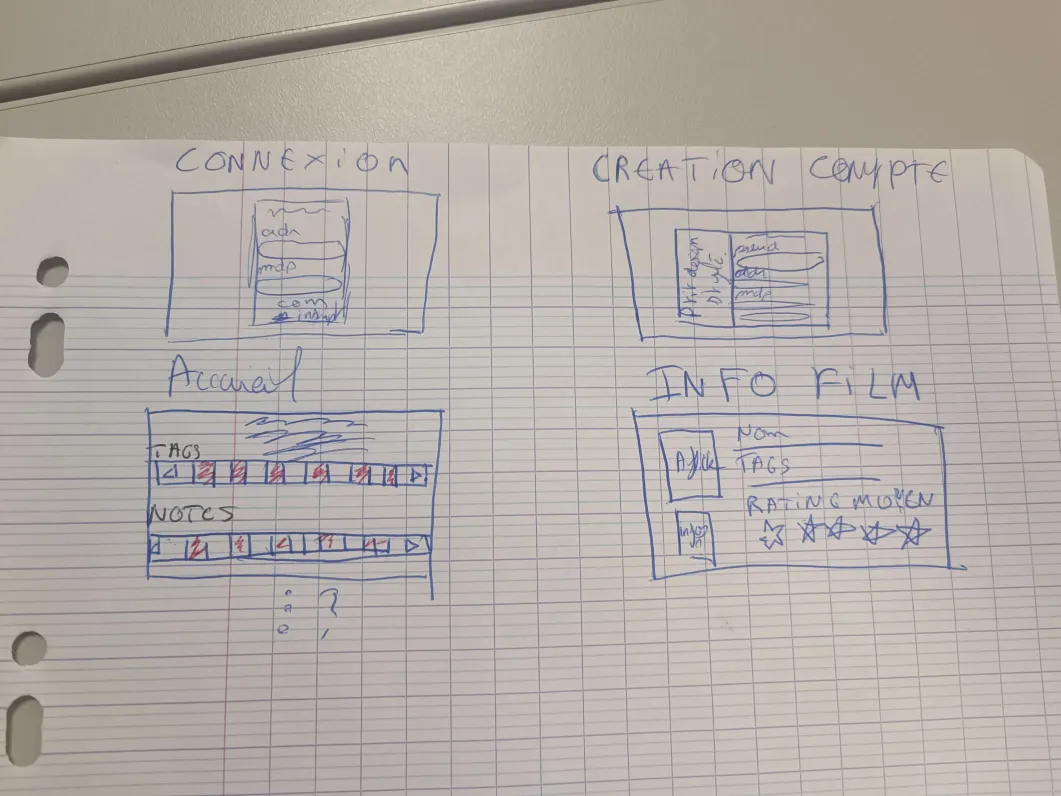 CONNEXION
adr
mdp
con
inscr
CREATION COMPTE
Ptit design
pseud
adr
mdp
Accueil
TAGS
NOTES
?
INFO FILM
Affich
Infos
NOM
TAGS
RATING MOYEN